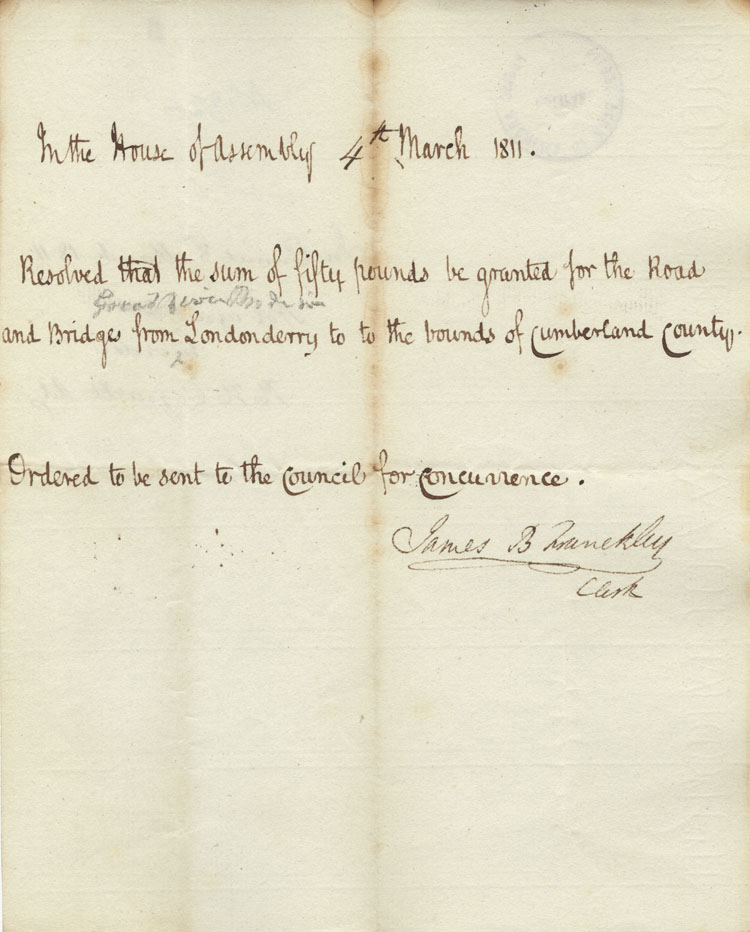 In the House of Assembly 4th March 1811.
Resolved that the sum of fifty pounds be granted for the Road
and Bridges from Londonderry to to the bounds of Cumberland County.
2
Ordered to be sent to the Council for concurrence.
James B Franckley
Clerk